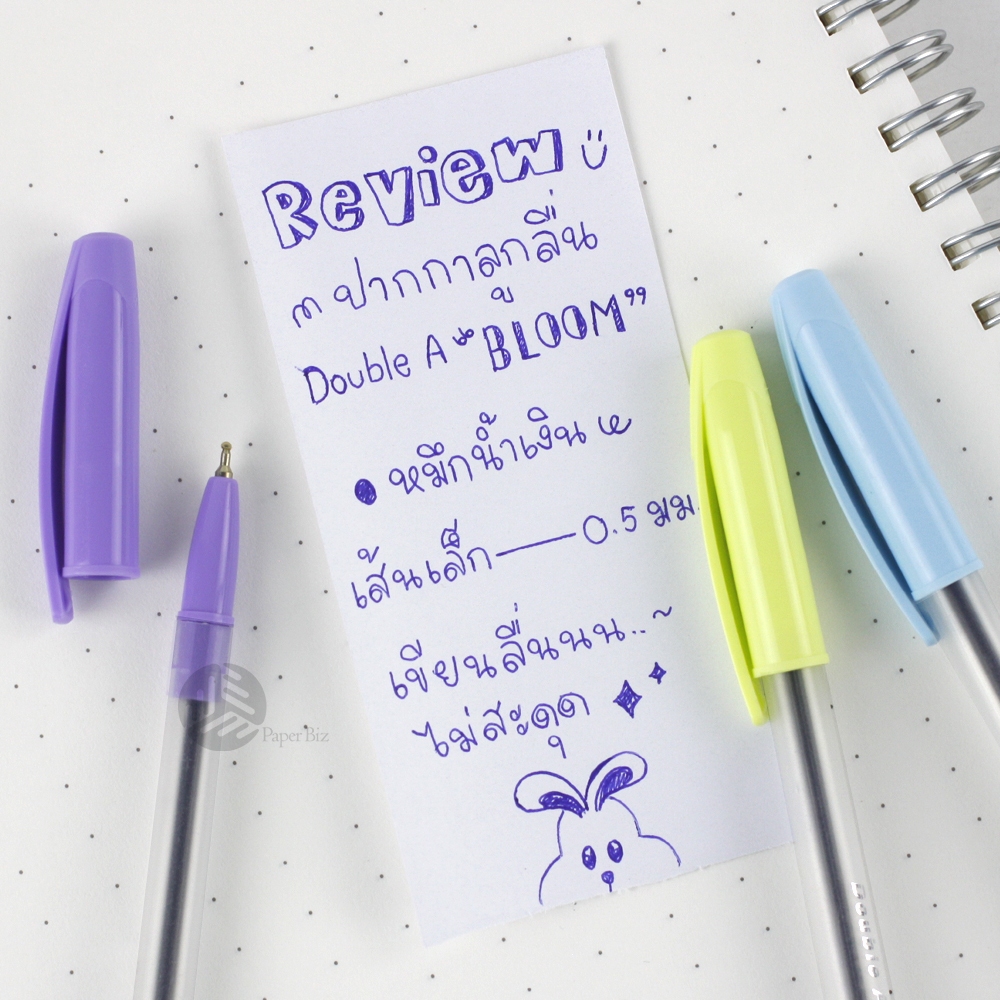 Review
ปากกาลูกลื่น
Double A "BLOOM"
หมึกน้ำเงิน
เส้นเล็ก — 0.5 มม.
เขียนลื่นนน..~
ไม่สะดุด
Paper Biz
Double A